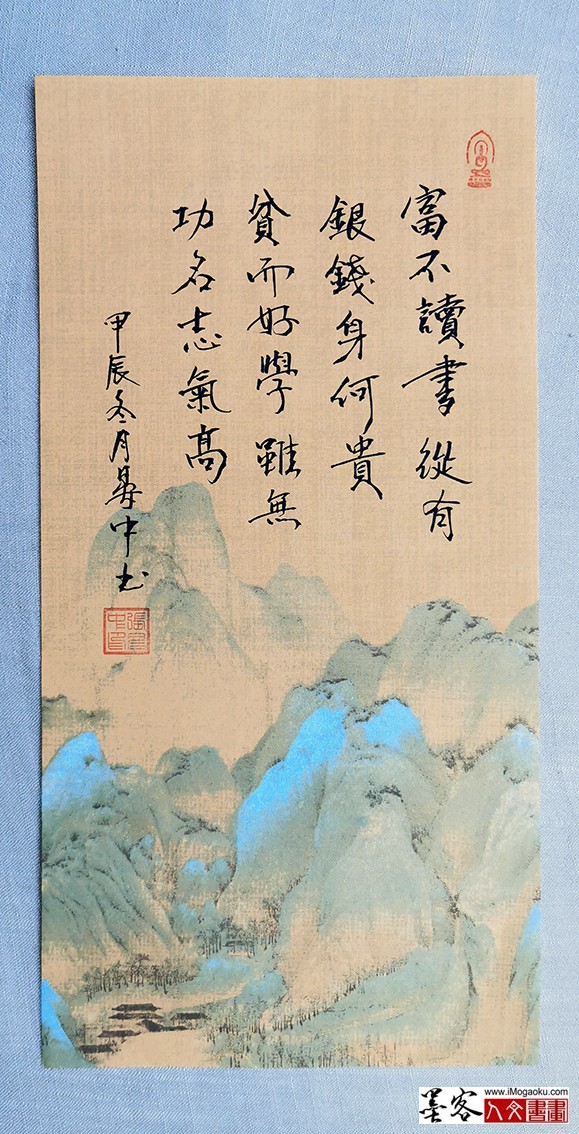 富不讀書從有
銀錢身何貴
貧而好學雖無
功名志氣高
甲辰冬月中书
墨客
www.iMogaoku.com
人文書畫